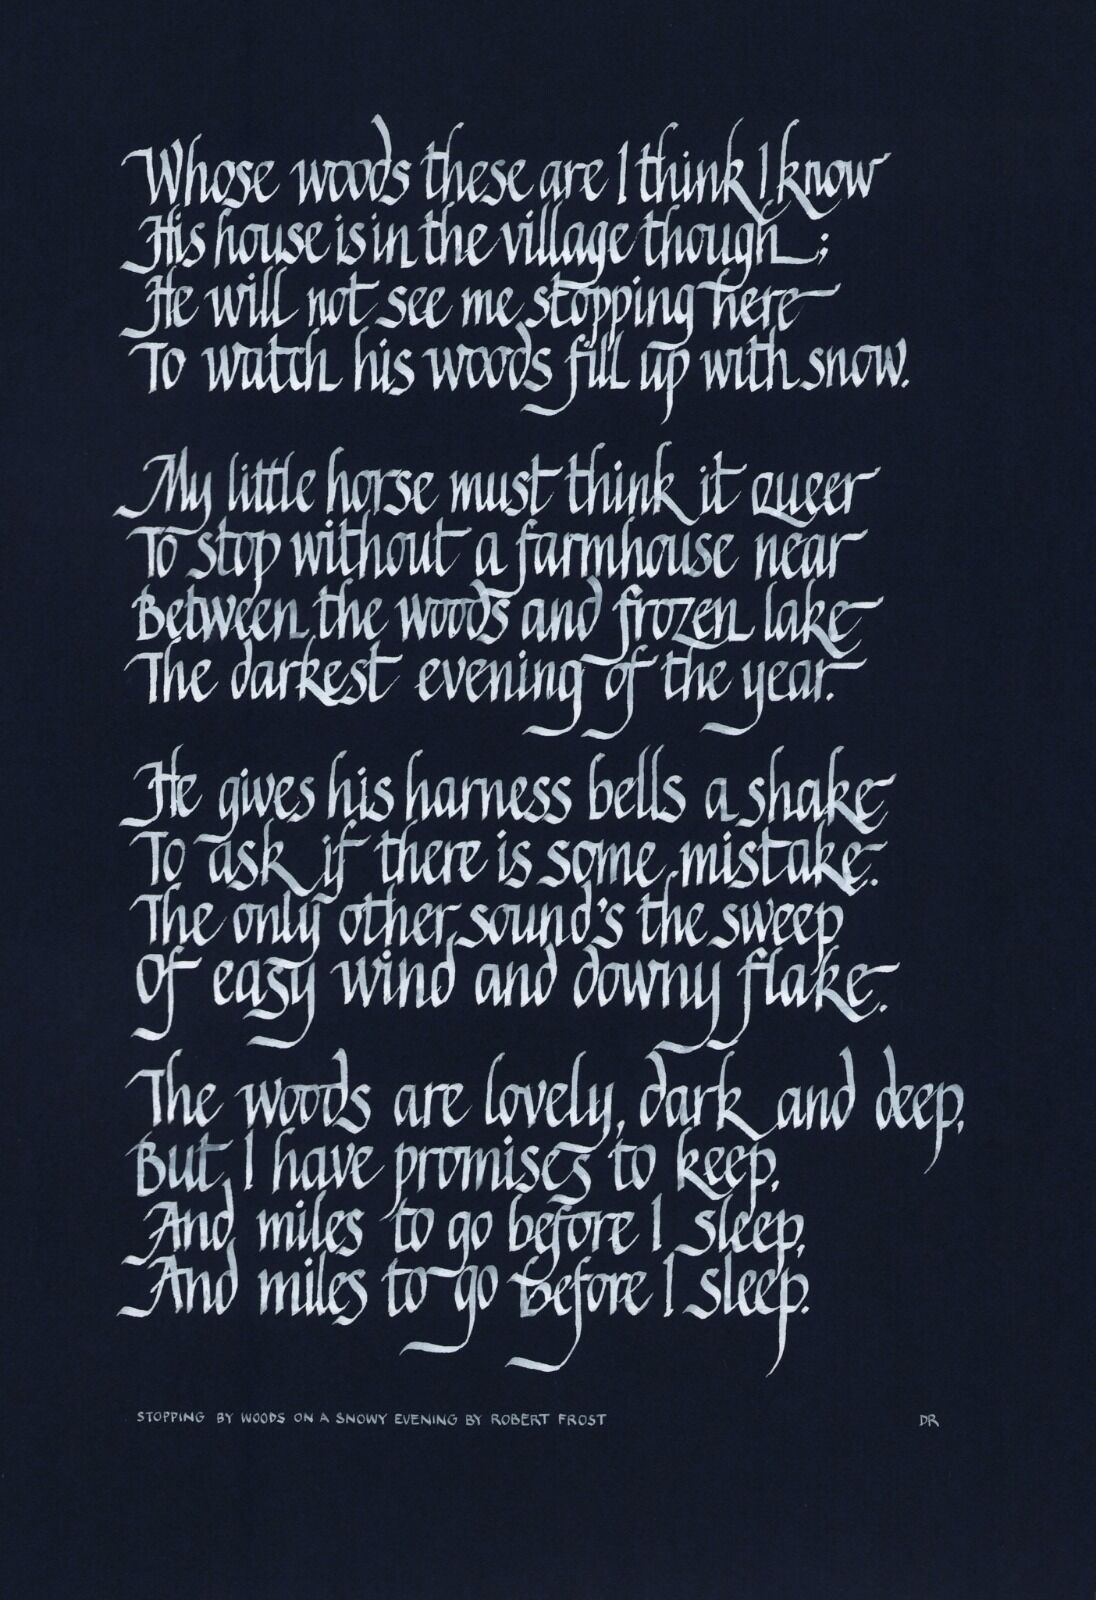 Whose woods these are I think I know
His house is in the village though;
He will not see me stopping here
To watch his woods fill up with snow.
My little horse must think it queer
To stop without a farmhouse near
Between the woods and frozen lake
The darkest evening of the year.
He gives his harness bells a shake
To ask if there is some mistake.
The only other sound's the sweep
Of easy wind and downy flake.
The woods are lovely, dark and deep,
But I have promises to keep,
And miles to go before I sleep,
And miles to go before I sleep.
STOPPING BY WOODS ON A SNOWY EVENING BY ROBERT FROST
DR